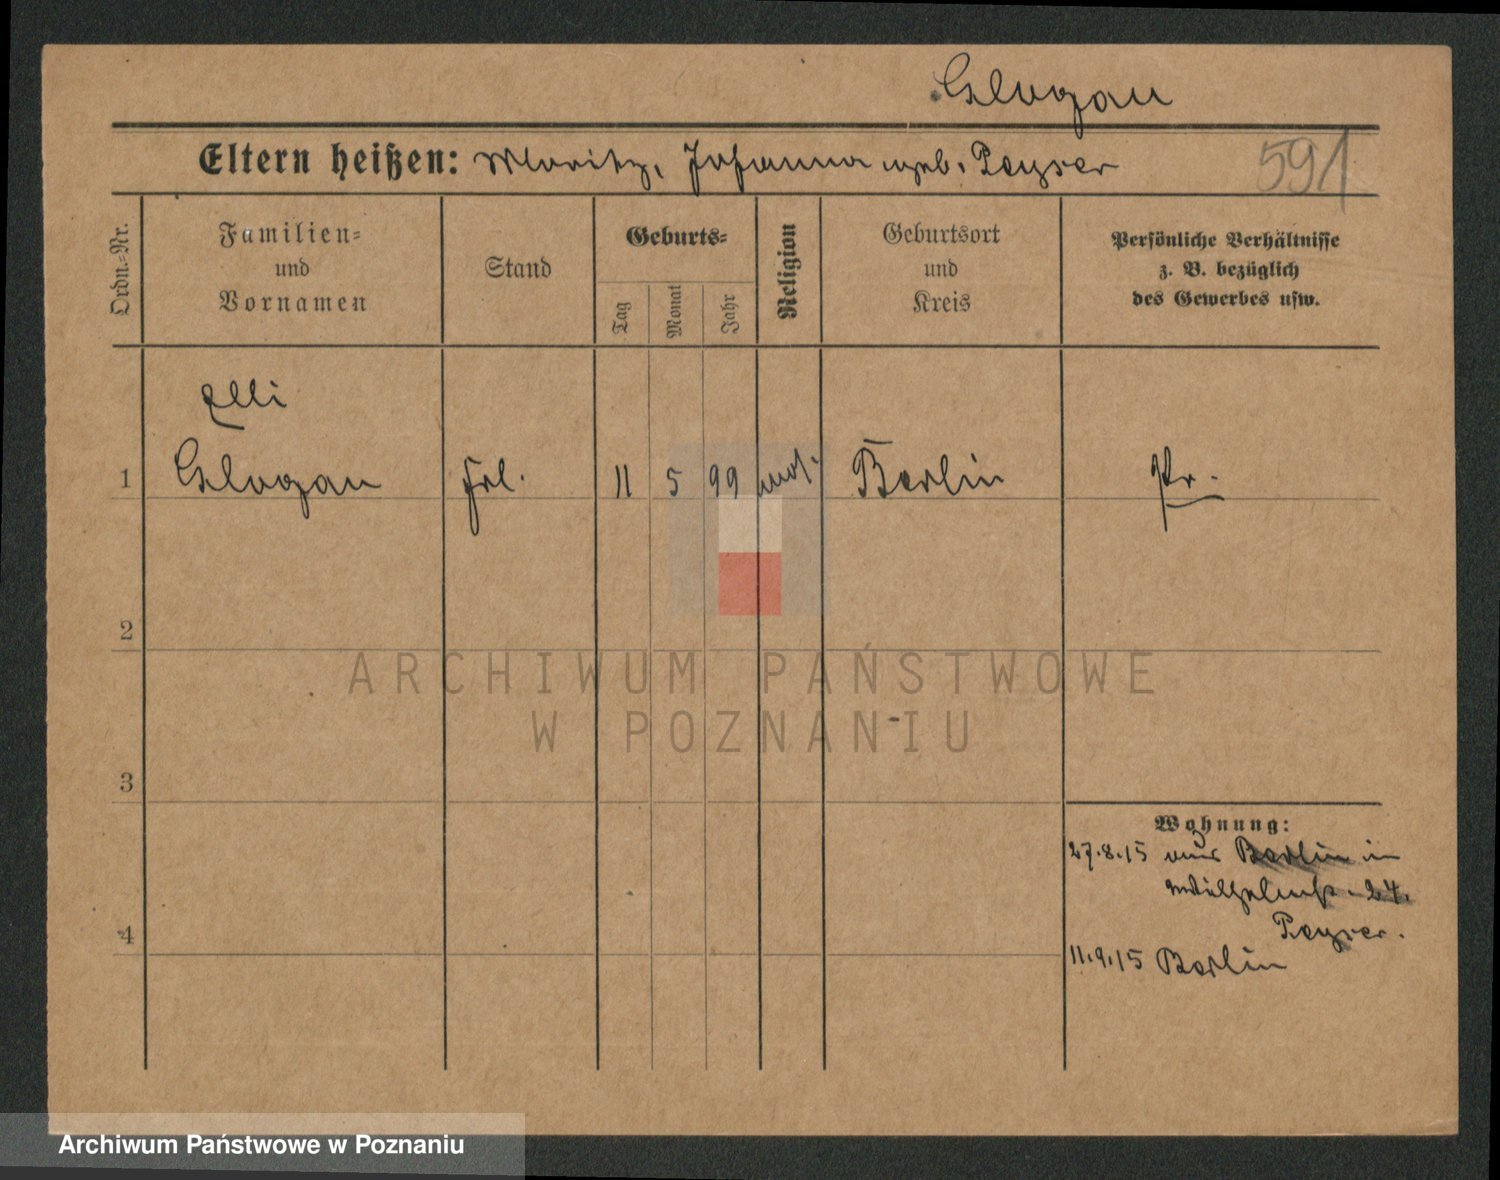 Glogau
Eltern heißen: Moritz, Johanna geb. Peyser
591
Ordn.-Nr.
Familien-
und
Vornamen
Stand
Geburts-
Tag
Monat
Jahr
Religion
Geburtsort
und
Kreis
Persönliche Verhältnisse
z. B. bezüglich
des Gewerbes usw.
Elli
1 Glogau Frl. 11 5 99 mos. Berlin Pr.
2
3
4
Wohnung:
27.8.15 aus Berlin in
Wilhelmstr. 24.
Peyser.
11.9.15 Berlin
ARCHIWUM PAŃSTWOWE
W POZNANIU
Archiwum Państwowe w Poznaniu